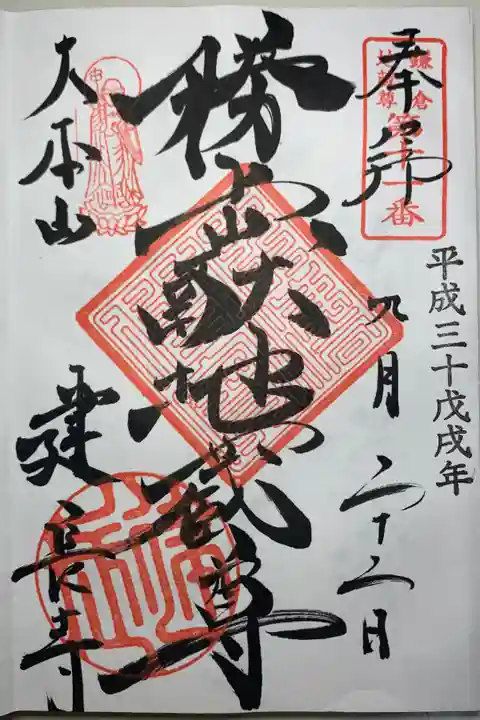 奉拝
鎌倉
地蔵尊
第十一番
平成三十戊戌年
九月二十二日
勝上嶽地蔵尊
大本山
建長寺